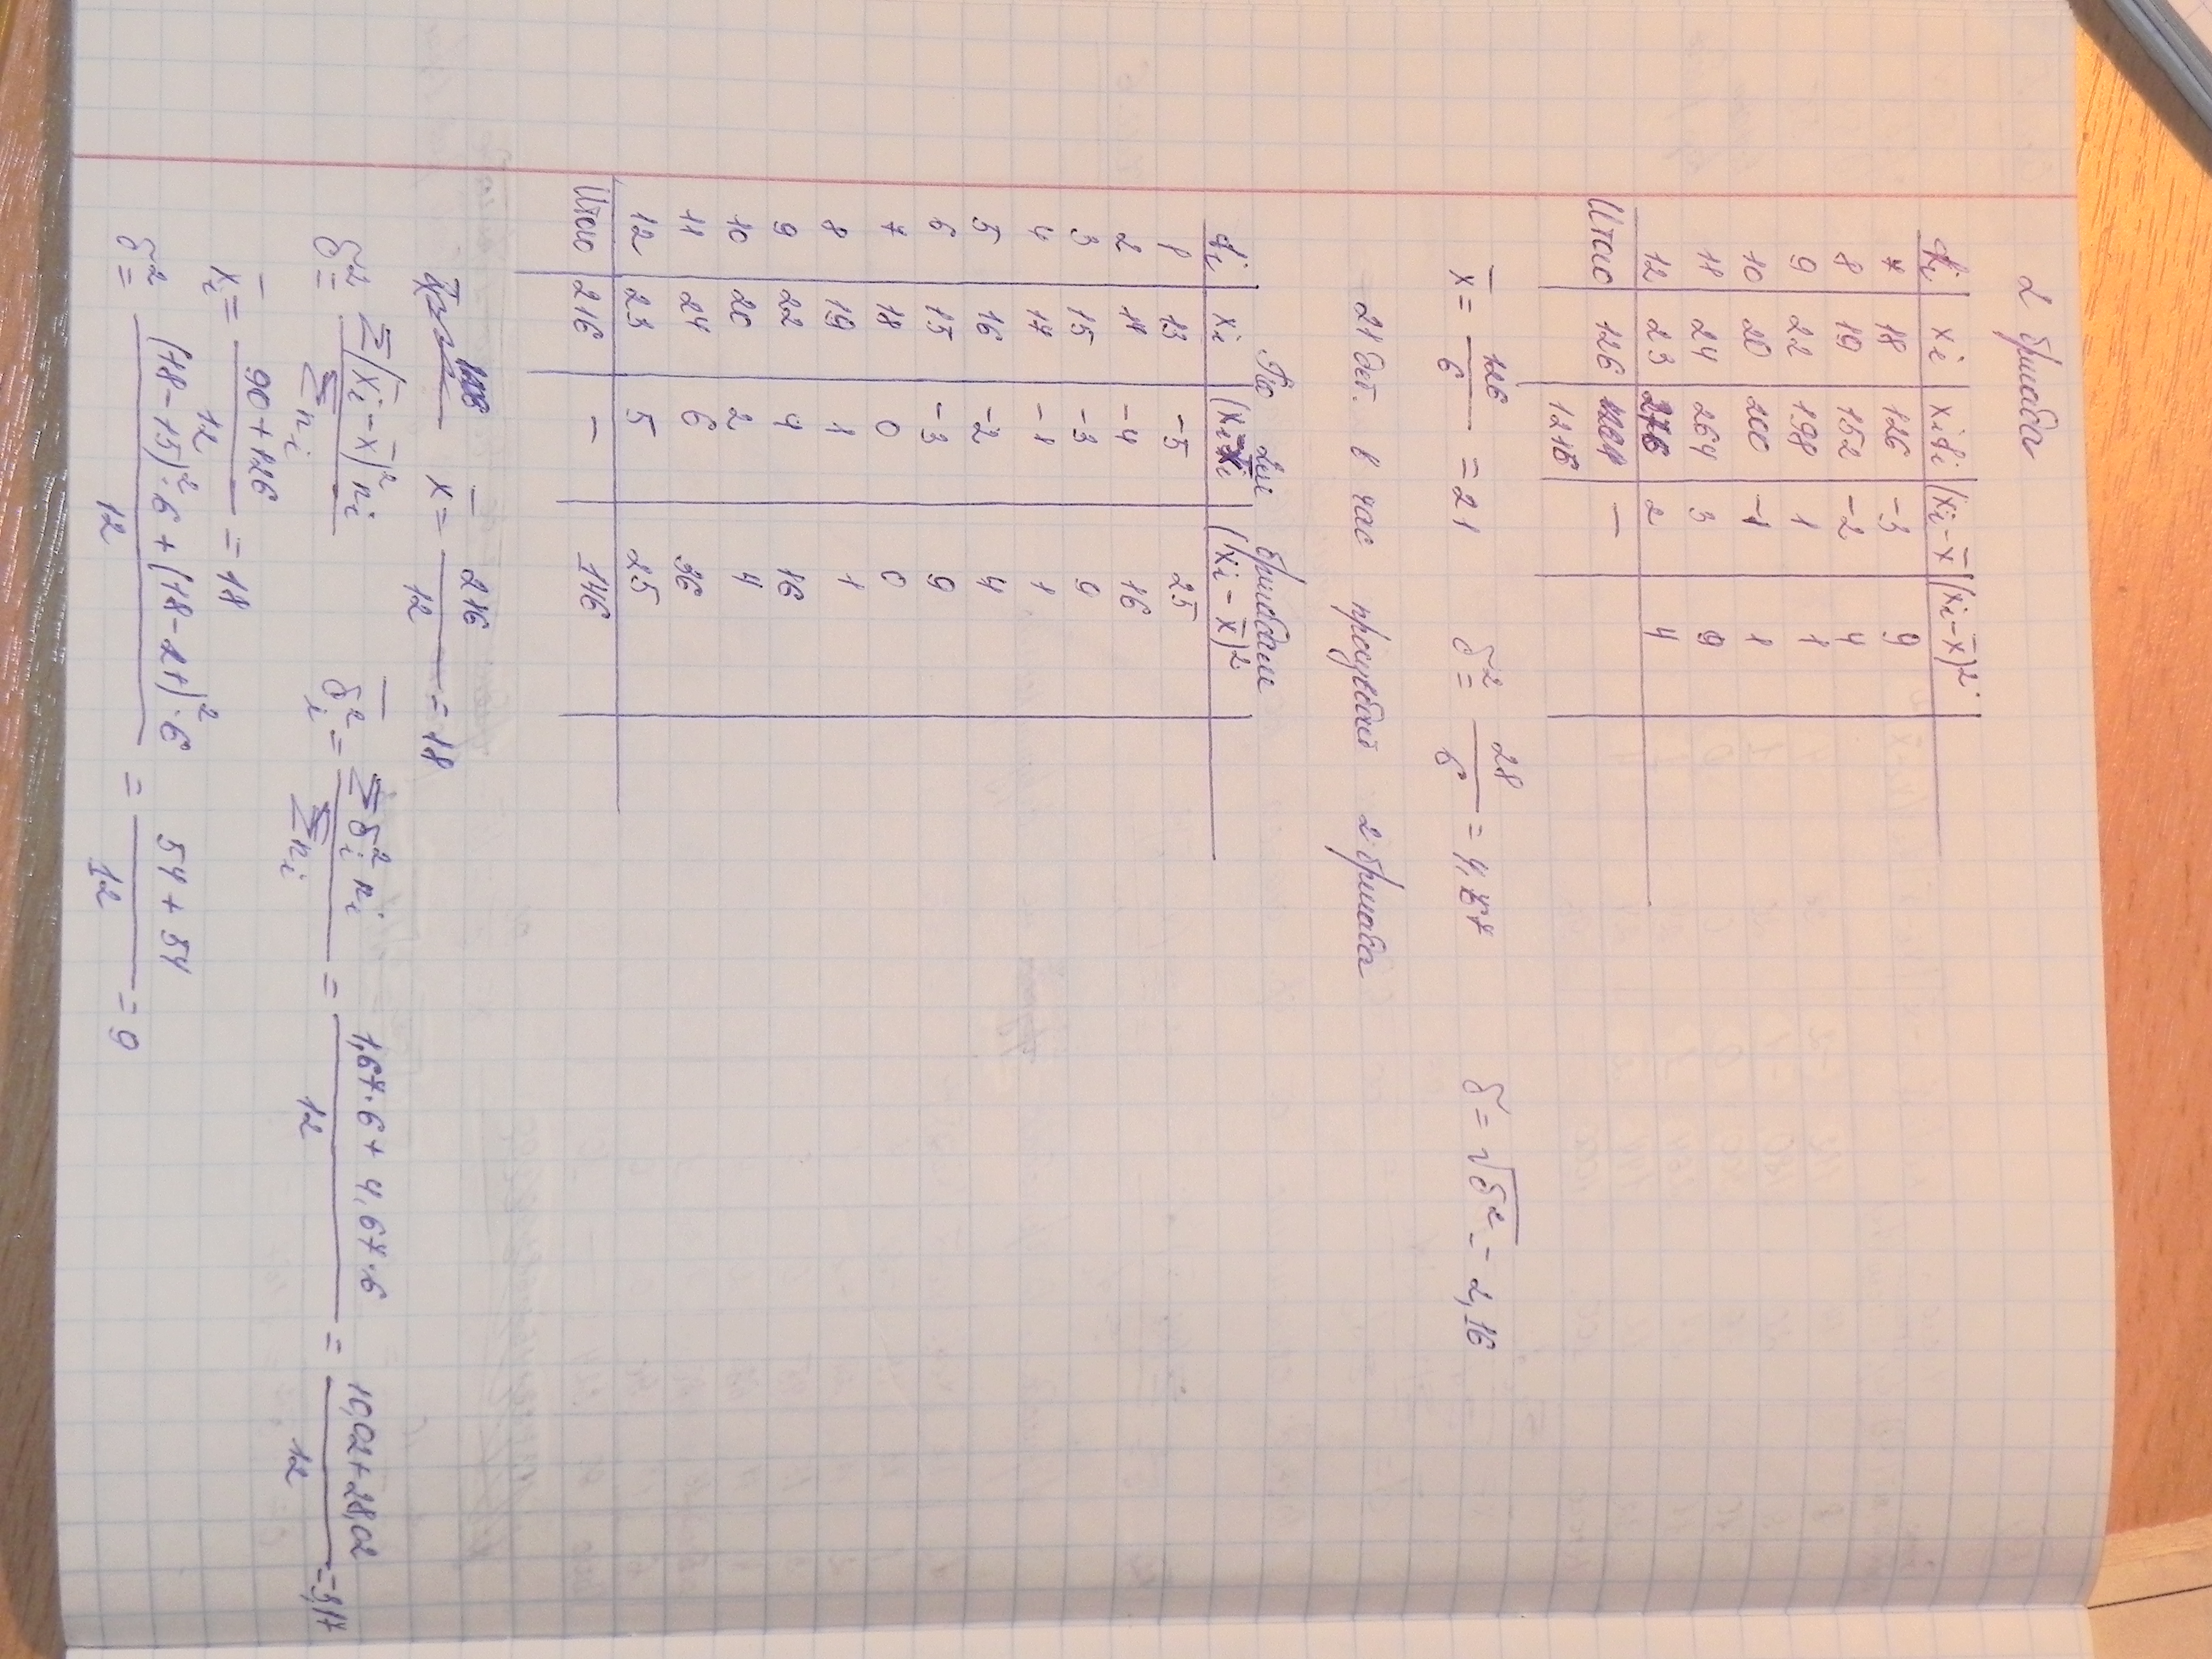 2 бригада
fi | xi | xifi | (xi – x̅) | (xi – x̅)².
7 | 18 | 126 | -3 | 9
8 | 19 | 152 | -2 | 4
9 | 22 | 198 | 1 | 1
10 | 20 | 200 | -1 | 1
11 | 24 | 264 | 3 | 9
12 | 23 | 276 | 2 | 4
Итого | 126 | –
1216
x̅ = 126/6 = 21    δ² = 28/6 = 4,67    δ = √δ² = 2,16
21 дет. в час 2 бригада
По двум бригадам
fi | xi | (xi – x̅) | (xi – x̅)²
1 | 13 | -5 | 25
2 | 14 | -4 | 16
3 | 15 | -3 | 9
4 | 17 | -1 | 1
5 | 16 | -2 | 4
6 | 15 | -3 | 9
7 | 18 | 0 | 0
8 | 19 | 1 | 1
9 | 22 | 4 | 16
10 | 20 | 2 | 4
11 | 24 | 6 | 36
12 | 23 | 5 | 25
Итого | 216 | – | 146
x̅ = 216/12 = 18
δ² = Σ(x̅i – x̅)² ni / Σni    δ̅i² = Σδi² ni / Σni = (1,67·6 + 4,67·6)/12 = (10,02+28,02)/12 = 3,17
x̅i = (90+126)/12 = 18
δ² = ((18-15)²·6 + (18-21)²·6)/12 = (54+54)/12 = 9